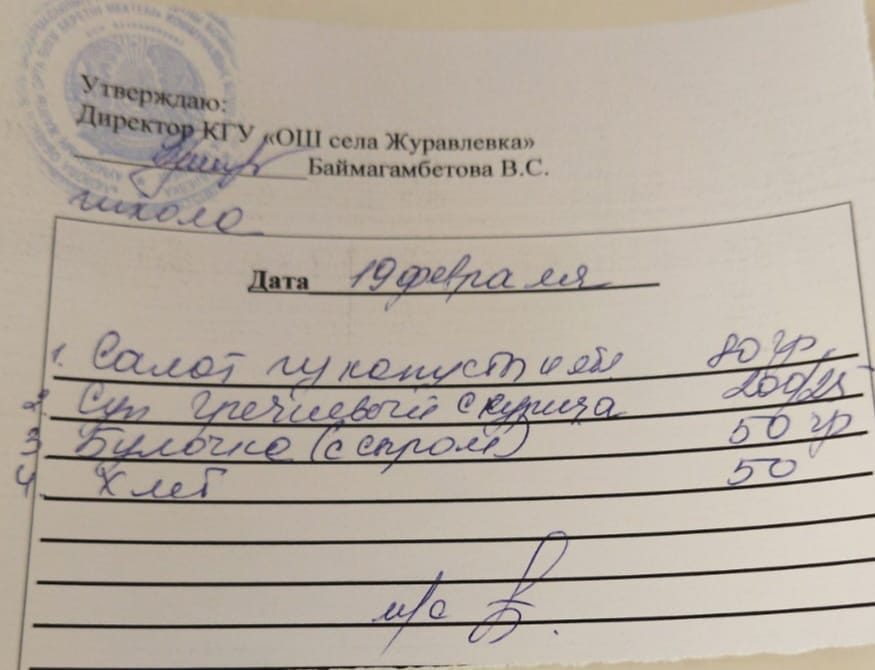 Утверждаю:
Директор КГУ «ОШ села Журавлевка»
Баймагамбетова В.С.
школа
Дата 19 февраля
1. Салат капусты 80 гр
2. Суп гречневый с курица 200/25
3 Булочка (с сыром) 50 гр
4. Хлеб 50
м/с